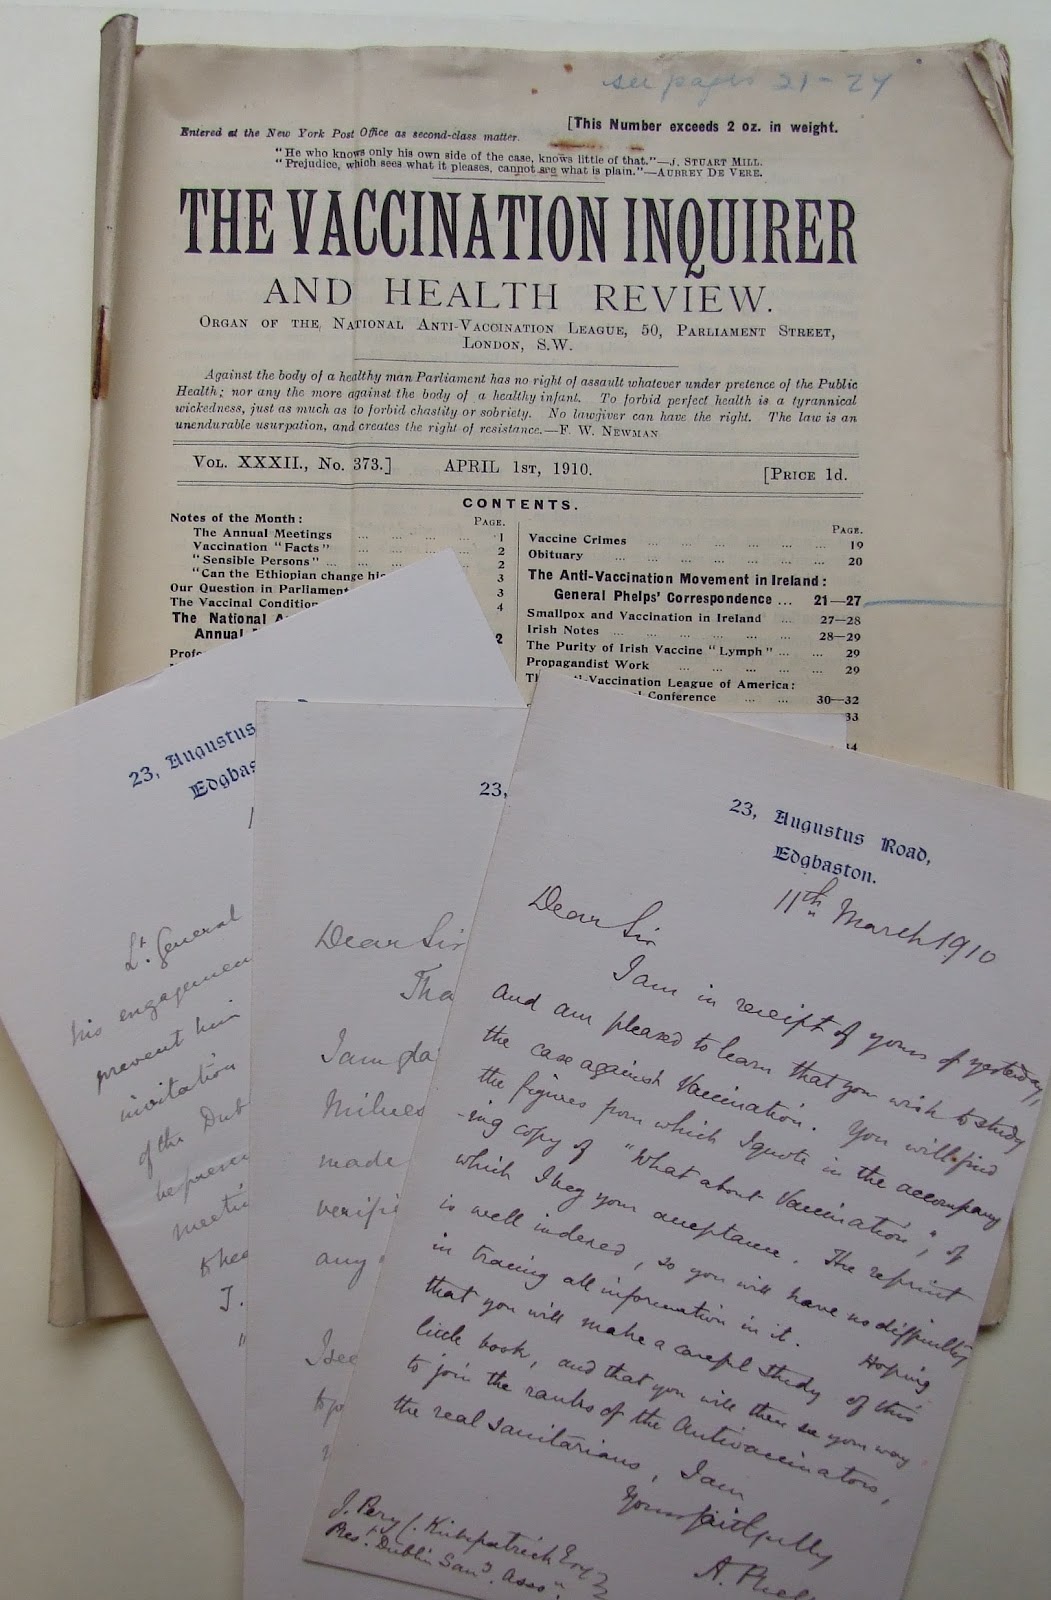 see pages 21-27
Entered at the New York Post Office as second-class matter.
[This Number exceeds 2 oz. in weight.
"He who knows only his own side of the case, knows little of that."—J. STUART MILL.
"Prejudice, which sees what it pleases, cannot see what is plain."—AUBREY DE VERE.
THE VACCINATION INQUIRER
AND HEALTH REVIEW.
ORGAN OF THE NATIONAL ANTI-VACCINATION LEAGUE, 50, PARLIAMENT STREET,
LONDON, S.W.
Against the body of a healthy man Parliament has no right of assault whatever under pretence of the Public
Health; nor any the more against the body of a healthy infant. To forbid perfect health is a tyrannical
wickedness, just as much as to forbid chastity or sobriety. No lawgiver can have the right. The law is an
unendurable usurpation, and creates the right of resistance.—F. W. NEWMAN
VOL. XXXII., No. 373.] APRIL 1ST, 1910. [PRICE 1d.
CONTENTS.
PAGE.
Notes of the Month:
The Annual Meetings ... ... ... ... 1
Vaccination "Facts" ... ... ... ... 2
"Sensible Persons" ... ... ... ... 2
"Can the Ethiopian change his 3
Our Question in Parliament 3
The Vaccinal Condition 4
The National A
Annual 2
Profe
PAGE.
Vaccine Crimes ... ... ... ... ... ... 19
Obituary ... ... ... ... ... ... 20
The Anti-Vaccination Movement in Ireland:
General Phelps' Correspondence ... 21—27
Smallpox and Vaccination in Ireland ... 27—28
Irish Notes ... ... ... ... ... 28—29
The Purity of Irish Vaccine "Lymph" ... ... 29
Propagandist Work ... ... ... ... 29
i-Vaccination League of America:
Conference ... ... 30—32
33
34
23, Augustus
Edgbas
Lt. General
his engagemen
prevent him
invitation
of the Dub
meetin
23,
Dear Sir
Tha
I am gla
Milnes
made
verifi
any
I see
23, Augustus Road,
Edgbaston.
11th March 1910
Dear Sir
I am in receipt of yours of yesterday,
and am pleased to learn that you wish to study
the case against Vaccination. You will find
the figures from which I quote in the accompany
-ing copy of "What about Vaccination", of
which I beg your acceptance. The reprint
is well indexed, so you will have no difficulty
in tracing all information in it. Hoping
that you will make a careful study of this
little book, and that you will then see your way
to join the ranks of the Antivaccinators,
the real sanitarians, I am
Yours faithfully
A. Phel
J. Percy C. Kirkpatrick Esq
Pres. Dublin San. Assn.